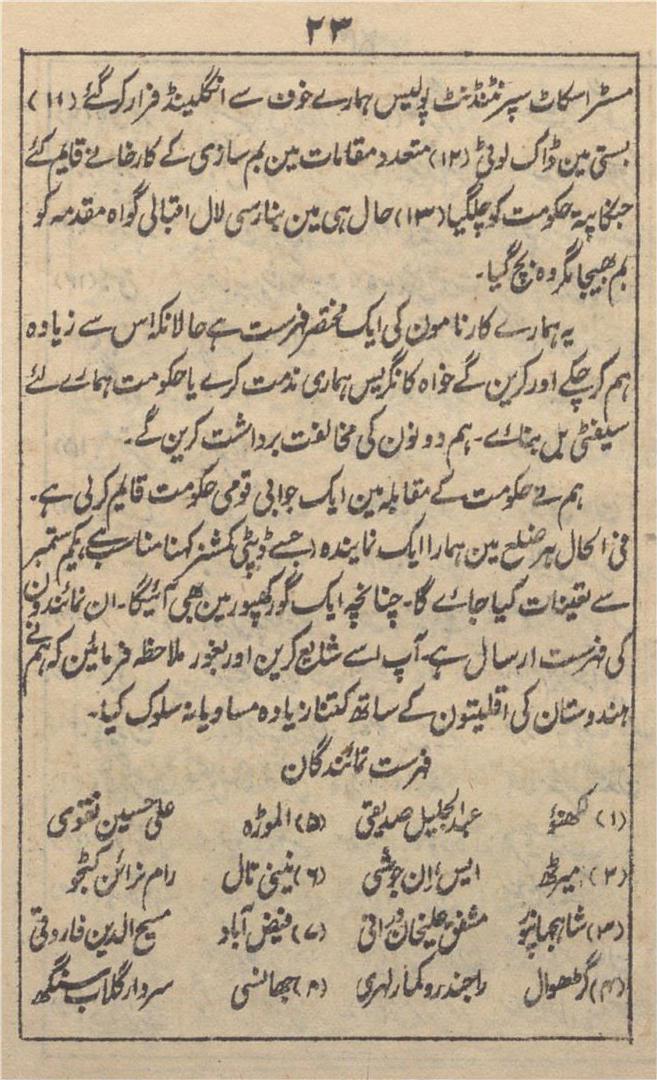 ۲۳
مسٹر اسکاٹ سپرنٹنڈنٹ پولیس ہمارے خوف سے انگلینڈ فرار کر گئے (۱۱)
بستی مین ڈاک لوٹی (۱۲) متعدد مقامات مین بم سازی کے کارخانے قایم کئے
جنکا پتہ حکومت کو چلگیا (۱۳) حال ہی مین بنارسی لال اقبالی گواہ مقدمہ کو
بم بھیجا مگر وہ بچ گیا۔
یہ ہمارے کارنامون کی ایک مختصر فہرست ہے حالانکہ اس سے زیادہ
ہم کر چکے اور کرین گے خواہ کانگریس ہماری مذمت کرے یا حکومت ہمارے لئے
سیفٹی بل بنائے۔ ہم دونون کی مخالفت برداشت کرین گے۔
ہم نے حکومت کے مقابلہ مین ایک جوابی قومی حکومت قایم کرلی ہے۔
فی الحال ہر ضلع مین ہمارا ایک نمایندہ (جسے ڈپٹی کمشنر کہنا مناسب ہے) یکم ستمبر
سے تعینات کیا جائے گا۔ چنانچہ ایک گورکھپور مین بھی آئیگا۔ ان نمائندون
کی فہرست ارسال ہے۔ آپ اسے شایع کرین اور بغور ملاحظہ فرمائین کہ ہم نے
ہندوستان کی اقلیتون کے ساتھ کتنا زیادہ مساویانہ سلوک کیا۔
فہرست نمائندگان
(۱) لکھنؤ عبدالجلیل صدیقی (۵) الموڑہ علی حسین نقوی
(۲) میرٹھ ایس ان جوشی (۶) نینی تال رام نرائن کٹجو
(۳) شاہجہانپور مشفق علیخان درانی (۷) فیض آباد مسیح الدین فاروقی
(۴) گڑھوال راجندر وکمار لہری (۸) جھانسی سردار گلاب سنگھ